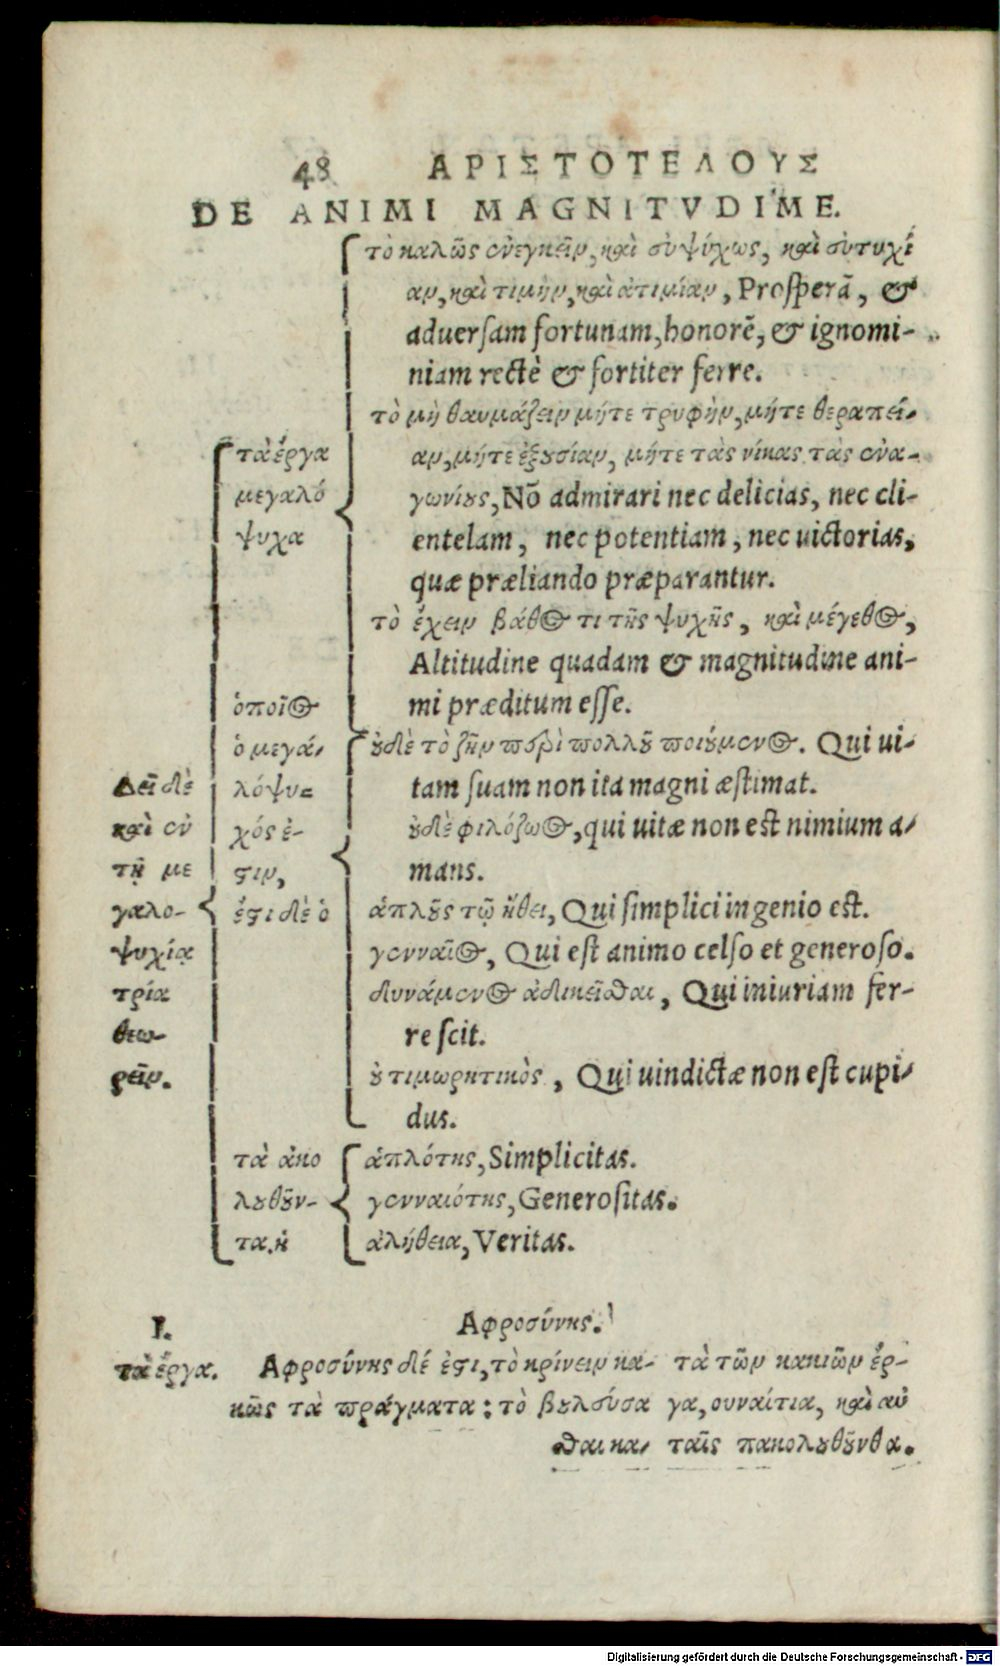 48 ΑΡΙΣΤΟΤΕΛΟΥΣ
DE ANIMI MAGNITVDIME.
Δεῖ δὲ
καὶ ἐν
τῇ με
γαλο-
ψυχίᾳ
τρία
θεω-
ρεῖν.
τὰ ἔργα
μεγαλό
ψυχα
τὸ καλῶς ἐνεγκεῖν, καὶ εὐψύχως, καὶ εὐτυχί
αν, καὶ τιμὴν, καὶ ἀτιμίαν, Prosperã, &
aduersam fortunam, honorẽ, & ignomi-
niam rectè & fortiter ferre.
τὸ μὴ θαυμάζειν μήτε τρυφὴν, μήτε θεραπεί-
αν, μήτε ἐξουσίαν, μήτε τὰς νίκας τὰς ἐνα-
γωνίους, Nõ admirari nec delicias, nec cli-
entelam, nec potentiam, nec uictorias,
quæ præliando præparantur.
τὸ ἔχειν βάθος τι τῆς ψυχῆς, καὶ μέγεθος,
Altitudine quadam & magnitudine ani-
mi præditum esse.
ὁποῖος
ὁ μεγα-
λόψυ=
χός ἐ-
στιν,
ἔστι δὲ ὁ
οὐδὲ τὸ ζῆν περὶ πολλοῦ ποιούμενος. Qui ui-
tam suam non ita magni æstimat.
οὐδὲ φιλόζωος, qui uitæ non est nimium a-
mans.
ἁπλοῦς τῷ ἤθει, Qui simplici ingenio est.
γενναῖος, Qui est animo celso et generoso.
δυνάμενος ἀδικεῖσθαι, Qui iniuriam fer-
re scit.
οὐ τιμωρητικὸς, Qui uindictæ non est cupi-
dus.
τὰ ἀκο
λουθοῦν-
τα. ἡ
ἁπλότης, Simplicitas.
γενναιότης, Generositas.
ἀλήθεια, Veritas.
Αφροσύνης.
I.
τὰ ἔργα.
Αφροσύνης δέ ἐστι, τὸ κρίνειν κα-
κῶς τὰ πράγματα: τὸ βουλεύσα
σθαι κα-
τὰ τῶν κακιῶν ἔρ-
γα, συναίτια, καὶ αὐ
ταῖς πακολουθοῦνθα.
Digitalisierung gefördert durch die Deutsche Forschungsgemeinschaft - DFG